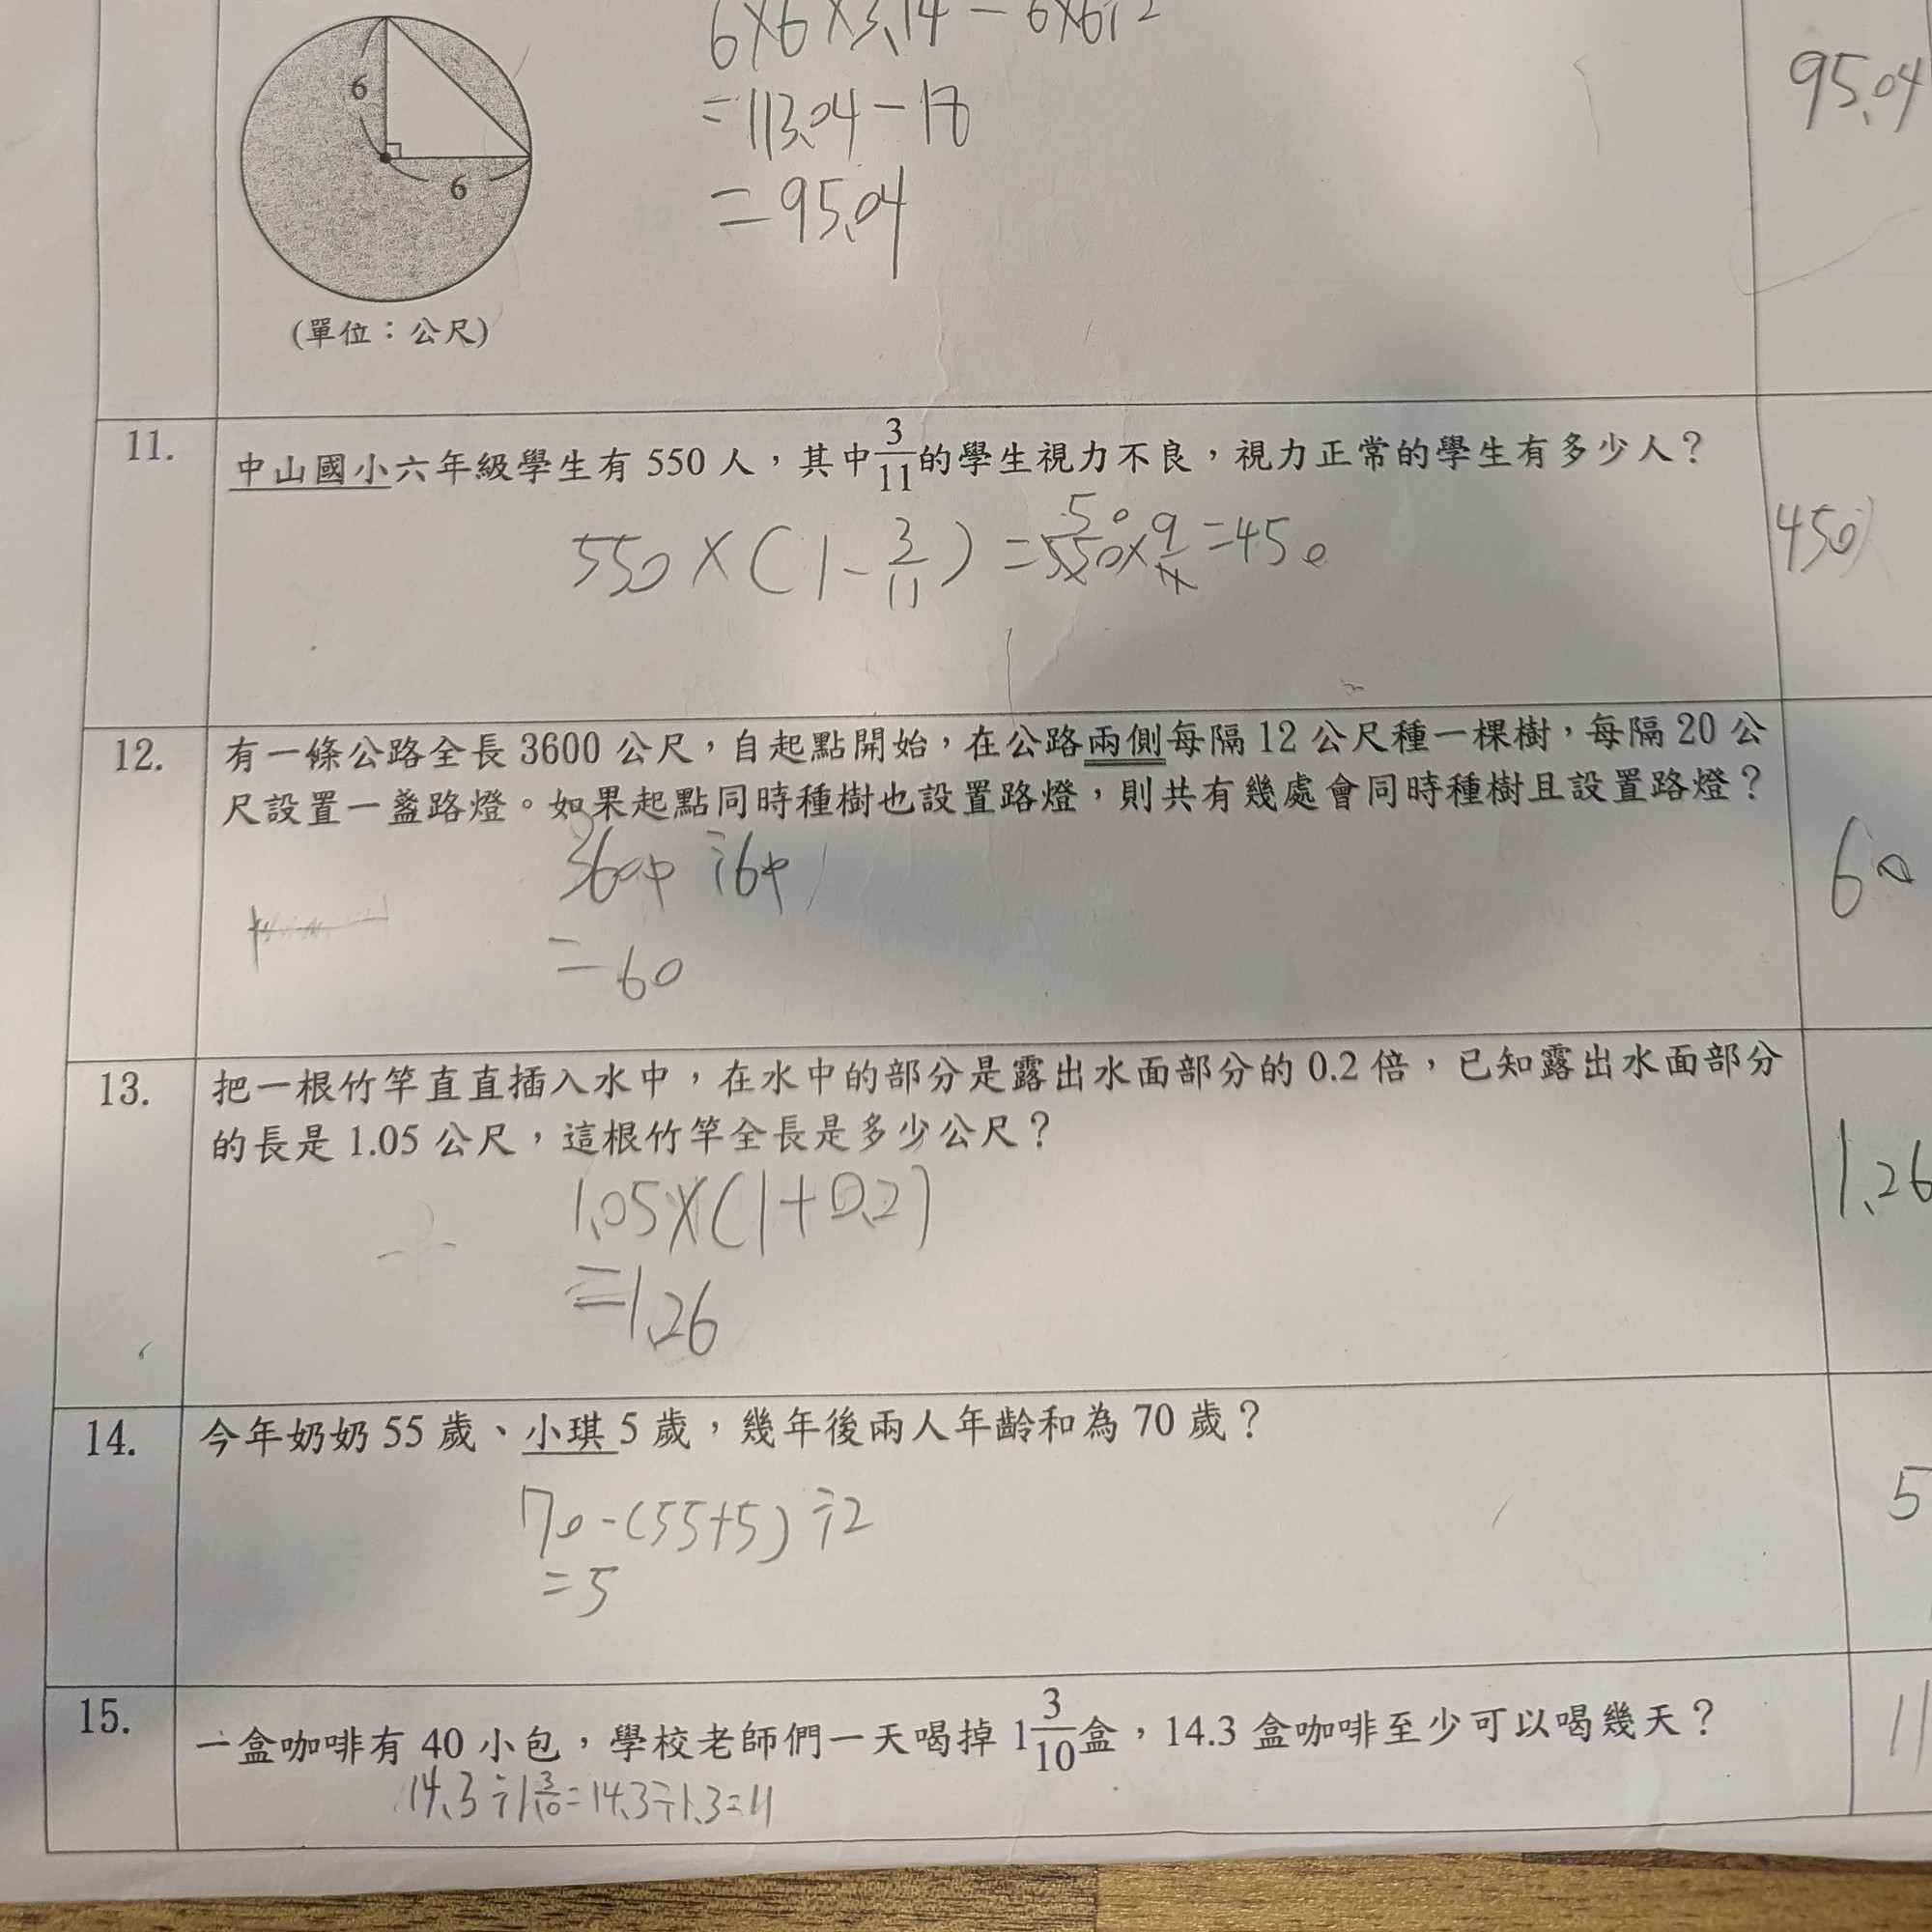 6×6×3.14－6×6÷2
=113.04－18
=95.04
95.04
6
6
(單位：公尺)
11.
中山國小六年級學生有 550 人，其中3/11的學生視力不良，視力正常的學生有多少人？
550×(1-3/11)=550×9/11=450
50
450
12.
有一條公路全長 3600 公尺，自起點開始，在公路兩側每隔 12 公尺種一棵樹，每隔 20 公
尺設置一盞路燈。如果起點同時種樹也設置路燈，則共有幾處會同時種樹且設置路燈？
3600÷60
=60
60
13.
把一根竹竿直直插入水中，在水中的部分是露出水面部分的 0.2 倍，已知露出水面部分
的長是 1.05 公尺，這根竹竿全長是多少公尺？
1.05×(1+0.2)
=1.26
1.26
14.
今年奶奶 55 歲、小琪 5 歲，幾年後兩人年齡和為 70 歲？
70-(55+5)÷2
=5
5
15.
一盒咖啡有 40 小包，學校老師們一天喝掉 1 3/10盒，14.3 盒咖啡至少可以喝幾天？
14.3÷1 3/10=14.3÷1.3=11
11